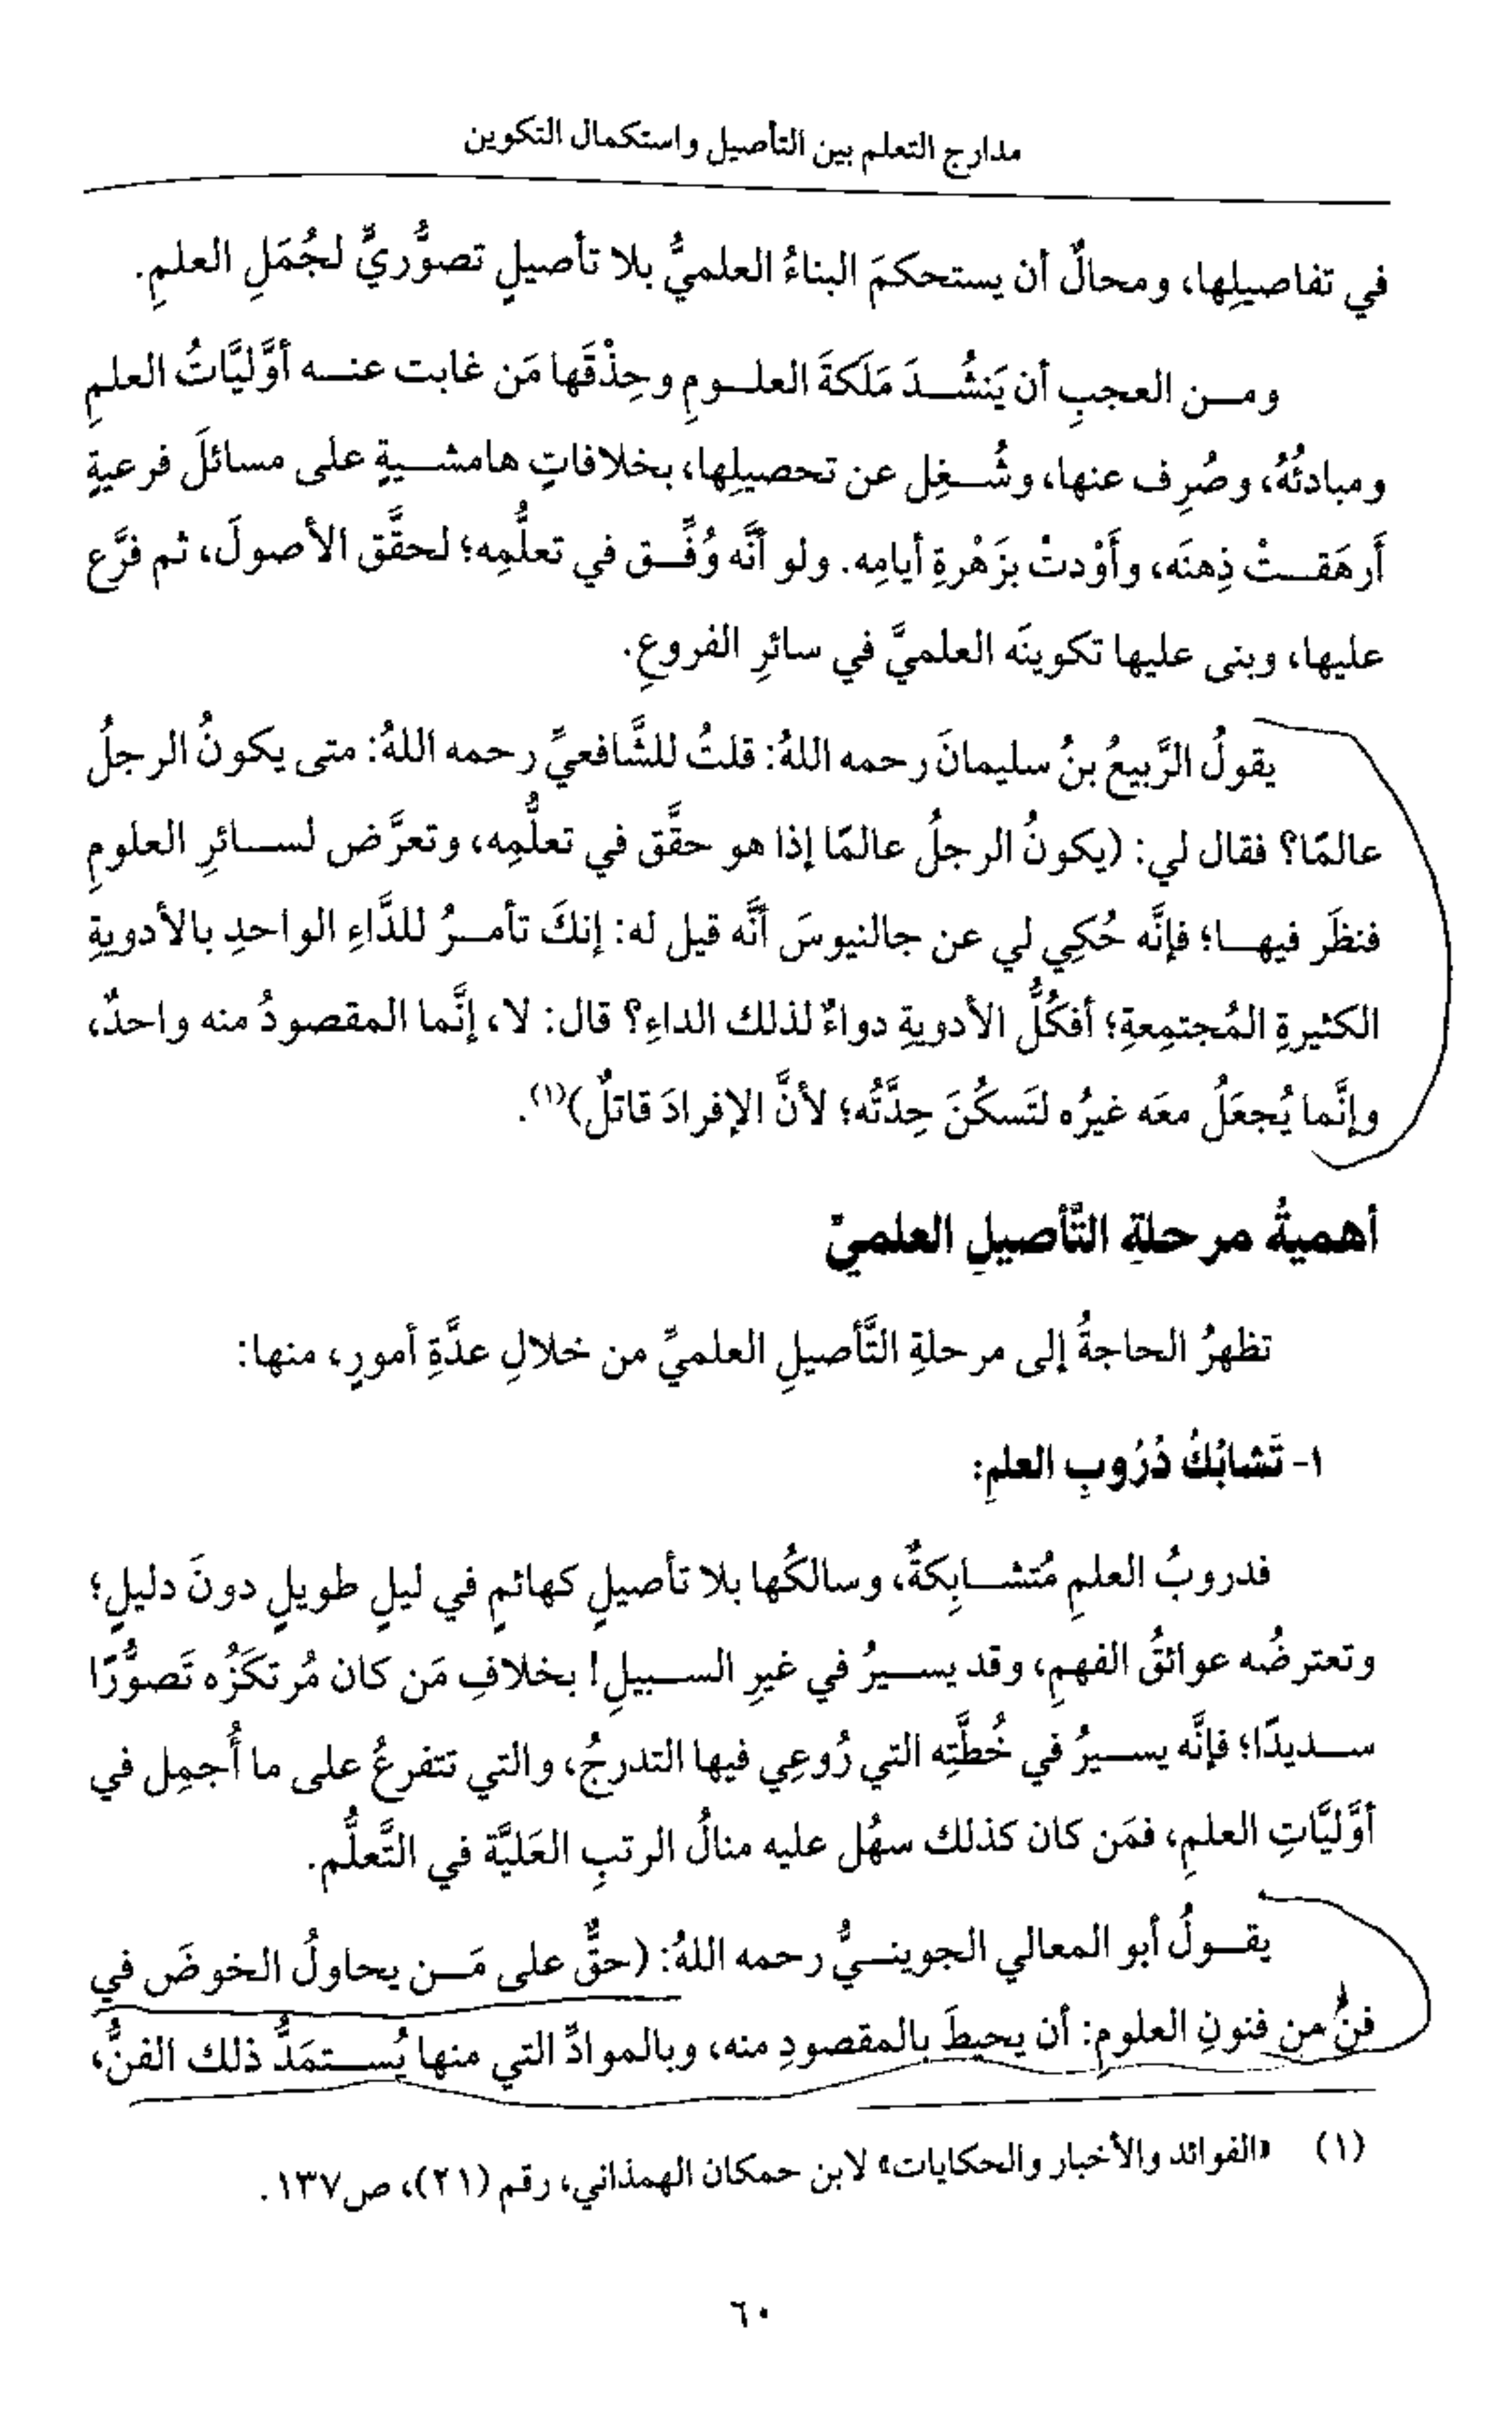 مدارج التعلم بين التأصيل واستكمال التكوين
في تفاصيلِها، ومحالٌ أن يستحكمَ البناءُ العلميُّ بلا تأصيلٍ تصوُّريٍّ لجُمَلِ العلمِ.
ومن العجبِ أن يَنشُدَ مَلَكةَ العلومِ وحِذْقَها مَن غابت عنه أوَّليَّاتُ العلمِ
ومبادئُهُ، وصُرِف عنها، وشُغِل عن تحصيلِها، بخلافاتٍ هامشيةٍ على مسائلَ فرعيةٍ
أَرهَقتْ ذِهنَه، وأَوْدتْ بزَهْرةِ أيامِه. ولو أنَّه وُفِّق في تعلُّمِه؛ لحقَّق الأصولَ، ثم فرَّع
عليها، وبنى عليها تكوينَه العلميَّ في سائرِ الفروعِ.
يقولُ الرَّبيعُ بنُ سليمانَ رحمه اللهُ: قلتُ للشَّافعيِّ رحمه اللهُ: متى يكونُ الرجلُ
عالمًا؟ فقال لي: (يكونُ الرجلُ عالمًا إذا هو حقَّق في تعلُّمِه، وتعرَّض لسائرِ العلومِ
فنظَر فيها؛ فإنَّه حُكِي لي عن جالنيوسَ أنَّه قيل له: إنكَ تأمرُ للدَّاءِ الواحدِ بالأدويةِ
الكثيرةِ المُجتمِعةِ؛ أفكُلُّ الأدويةِ دواءٌ لذلك الداءِ؟ قال: لا، إنَّما المقصودُ منه واحدٌ،
وإنَّما يُجعَلُ معَه غيرُه لتَسكُنَ حِدَّتُه؛ لأنَّ الإفرادَ قاتلٌ)(١).
أهميةُ مرحلةِ التَّأصيلِ العلميِّ
تظهرُ الحاجةُ إلى مرحلةِ التَّأصيلِ العلميِّ من خلالِ عدَّةِ أمورٍ، منها:
١- تَشابُكُ دُرُوبِ العلمِ:
فدروبُ العلمِ مُتشابِكةٌ، وسالكُها بلا تأصيلٍ كهائمٍ في ليلٍ طويلٍ دونَ دليلٍ؛
وتعترضُه عوائقُ الفهمِ، وقد يسيرُ في غيرِ السبيلِ! بخلافِ مَن كان مُرتكَزُه تَصوُّرًا
سديدًا؛ فإنَّه يسيرُ في خُطَّتِه التي رُوعِي فيها التدرجُ، والتي تتفرعُ على ما أُجمِل في
أوَّليَّاتِ العلمِ، فمَن كان كذلك سهُل عليه منالُ الرتبِ العَليَّة في التَّعلُّم.
يقولُ أبو المعالي الجوينيُّ رحمه اللهُ: (حقٌّ على مَن يحاولُ الخوضَ في
فنٍّ من فنونِ العلومِ: أن يحيطَ بالمقصودِ منه، وبالموادِّ التي منها يُستمَدُّ ذلك الفنُّ،
(١) «الفوائد والأخبار والحكايات» لابن حمكان الهمذاني، رقم (٢١)، ص١٣٧.
٦٠